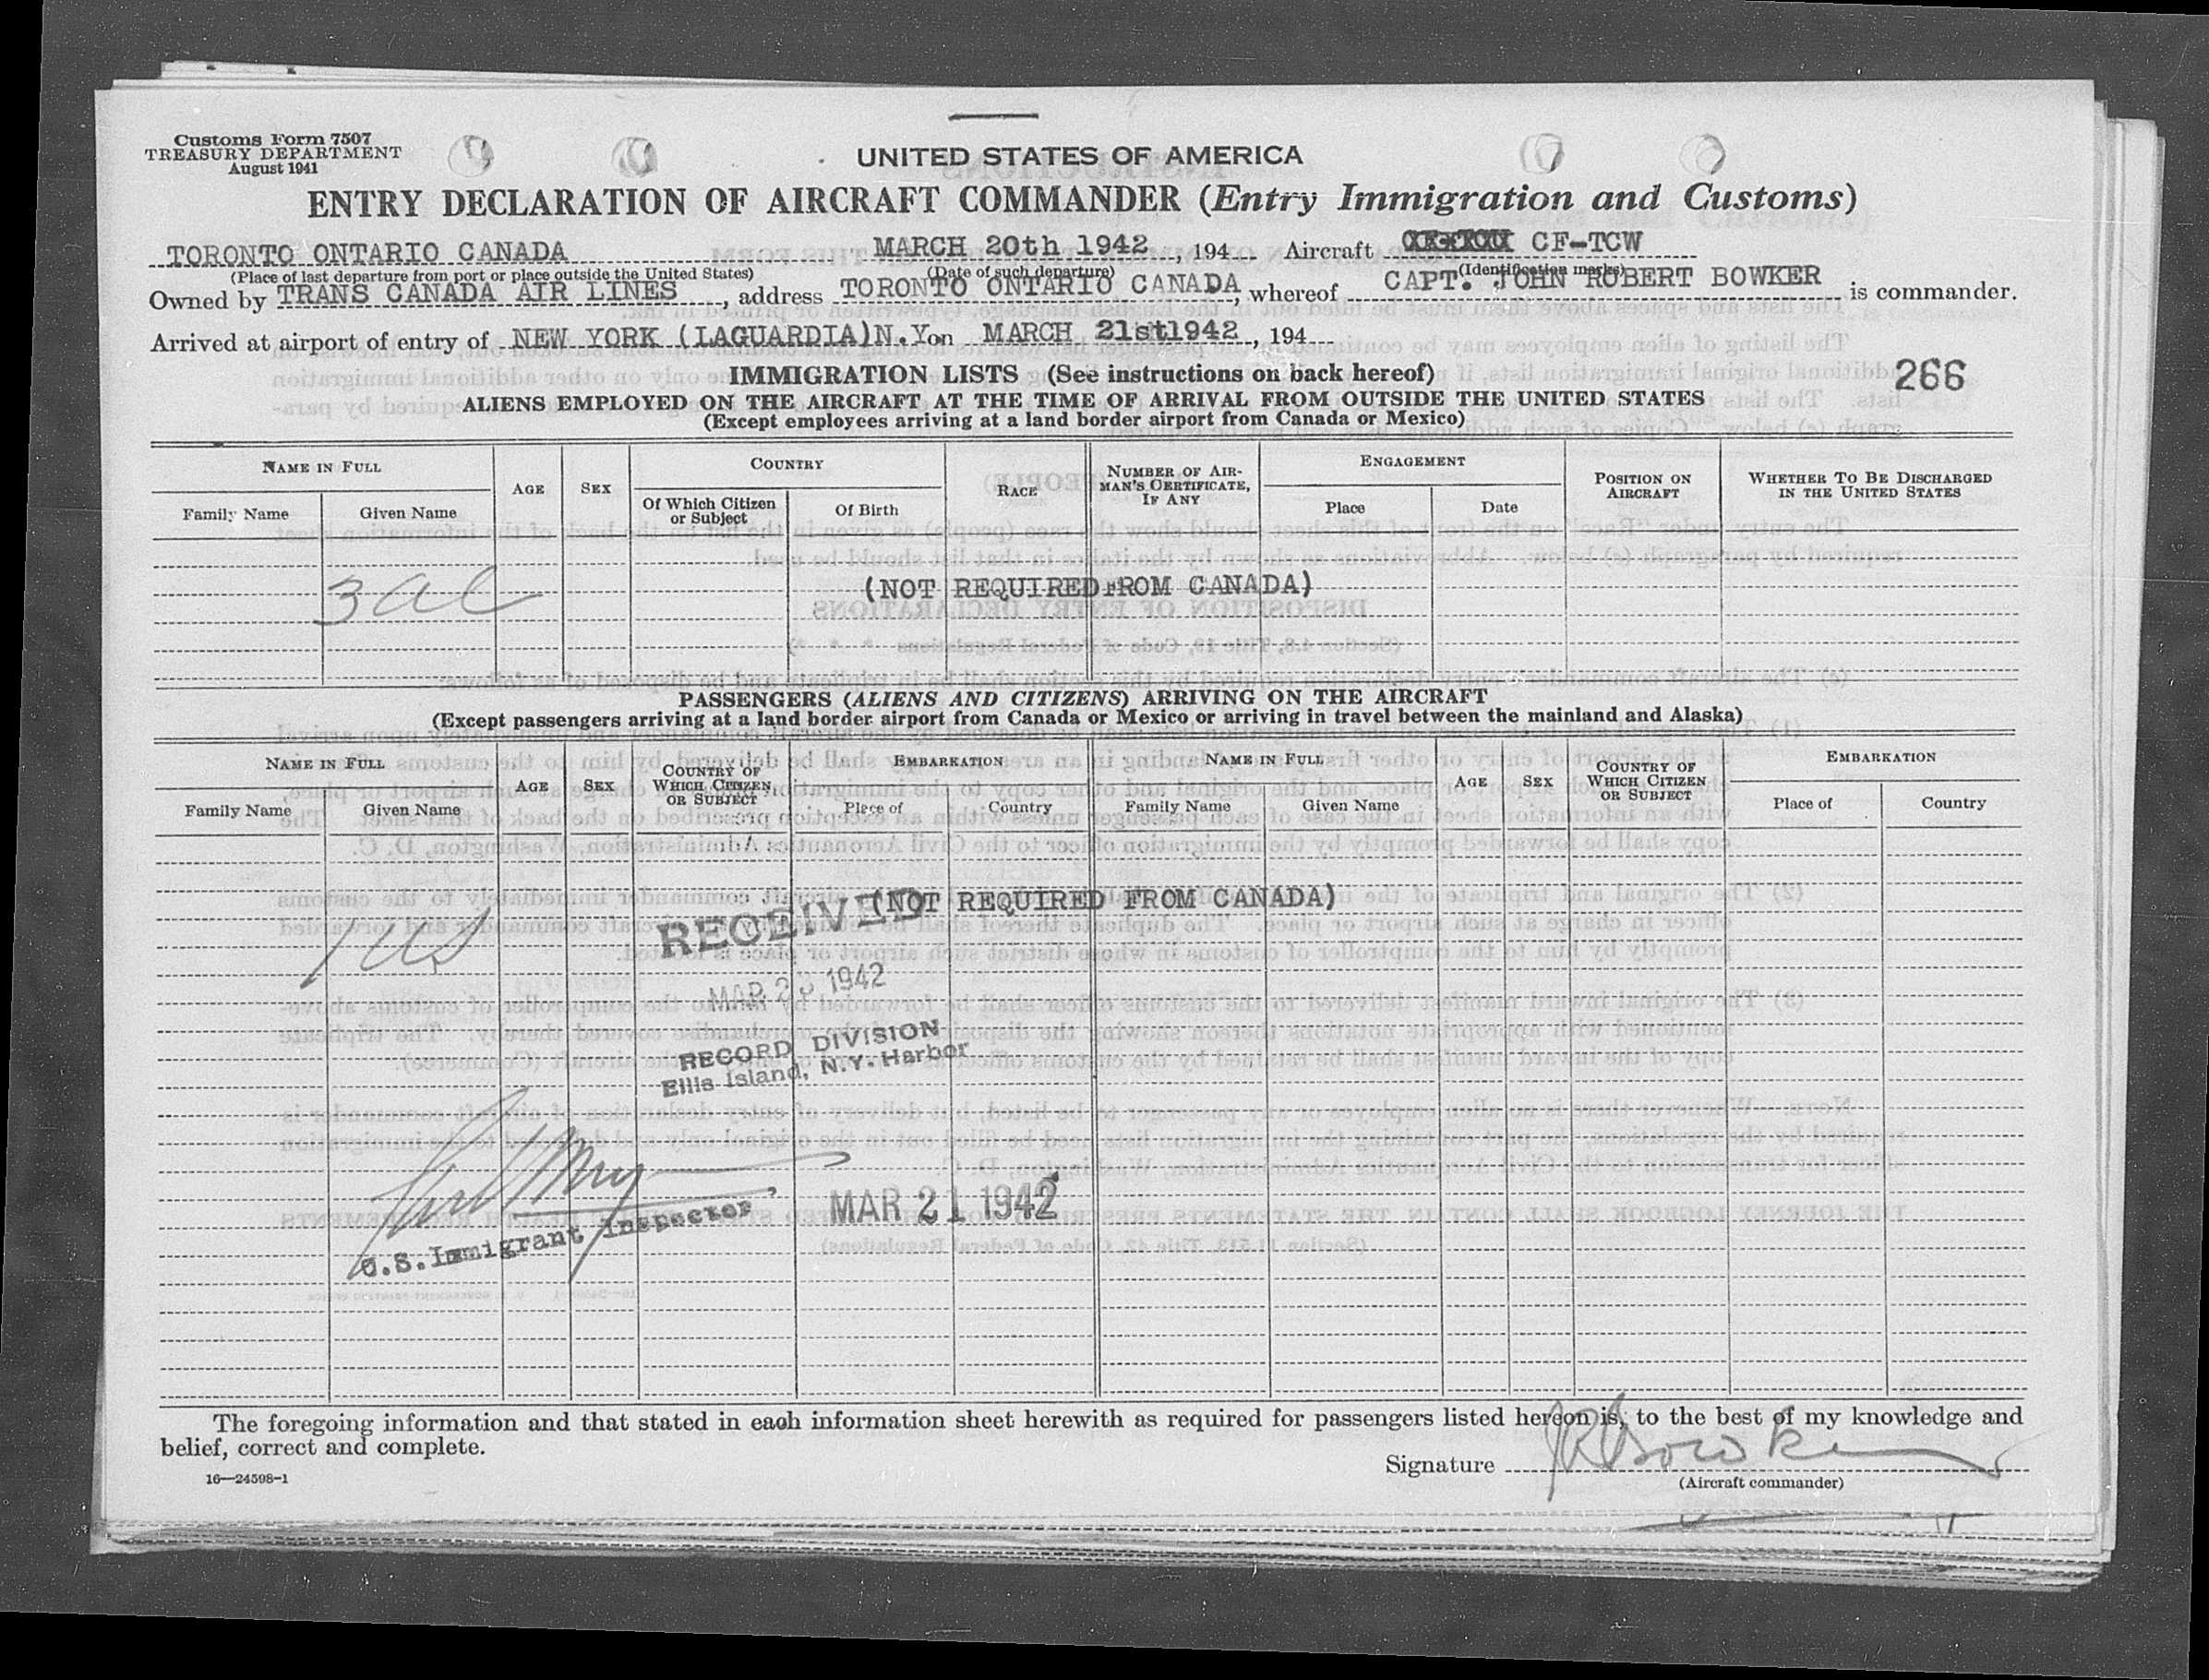 Customs Form 7507
TREASURY DEPARTMENT
August 1941
UNITED STATES OF AMERICA
ENTRY DECLARATION OF AIRCRAFT COMMANDER (Entry Immigration and Customs)
TORONTO ONTARIO CANADA MARCH 20th 1942, 194 Aircraft CF-TCW
(Place of last departure from port or place outside the United States) (Date of such departure) (Identification marks)
Owned by TRANS CANADA AIR LINES, address TORONTO ONTARIO CANADA, whereof CAPT. JOHN ROBERT BOWKER is commander.
Arrived at airport of entry of NEW YORK (LAGUARDIA)N.Y. on MARCH 21st1942, 194
IMMIGRATION LISTS (See instructions on back hereof)
266
ALIENS EMPLOYED ON THE AIRCRAFT AT THE TIME OF ARRIVAL FROM OUTSIDE THE UNITED STATES
(Except employees arriving at a land border airport from Canada or Mexico)
NAME IN FULL AGE SEX COUNTRY RACE NUMBER OF AIRMAN'S CERTIFICATE, IF ANY ENGAGEMENT POSITION ON AIRCRAFT WHETHER TO BE DISCHARGED IN THE UNITED STATES
Family Name Given Name Of Which Citizen or Subject Of Birth Place Date
(NOT REQUIRED FROM CANADA)
3 al
PASSENGERS (ALIENS AND CITIZENS) ARRIVING ON THE AIRCRAFT
(Except passengers arriving at a land border airport from Canada or Mexico or arriving in travel between the mainland and Alaska)
NAME IN FULL AGE SEX COUNTRY OF WHICH CITIZEN OR SUBJECT EMBARKATION NAME IN FULL AGE SEX COUNTRY OF WHICH CITIZEN OR SUBJECT EMBARKATION
Family Name Given Name Place of Country Family Name Given Name Place of Country
(NOT REQUIRED FROM CANADA)
RECEIVED
1 us
MAR 23 1942
RECORD DIVISION
Ellis Island, N.Y. Harbor
MAR 21 1942
U.S. Immigrant Inspector
The foregoing information and that stated in each information sheet herewith as required for passengers listed hereon is, to the best of my knowledge and
belief, correct and complete.
Signature JR Bowker
16—24598-1
(Aircraft commander)